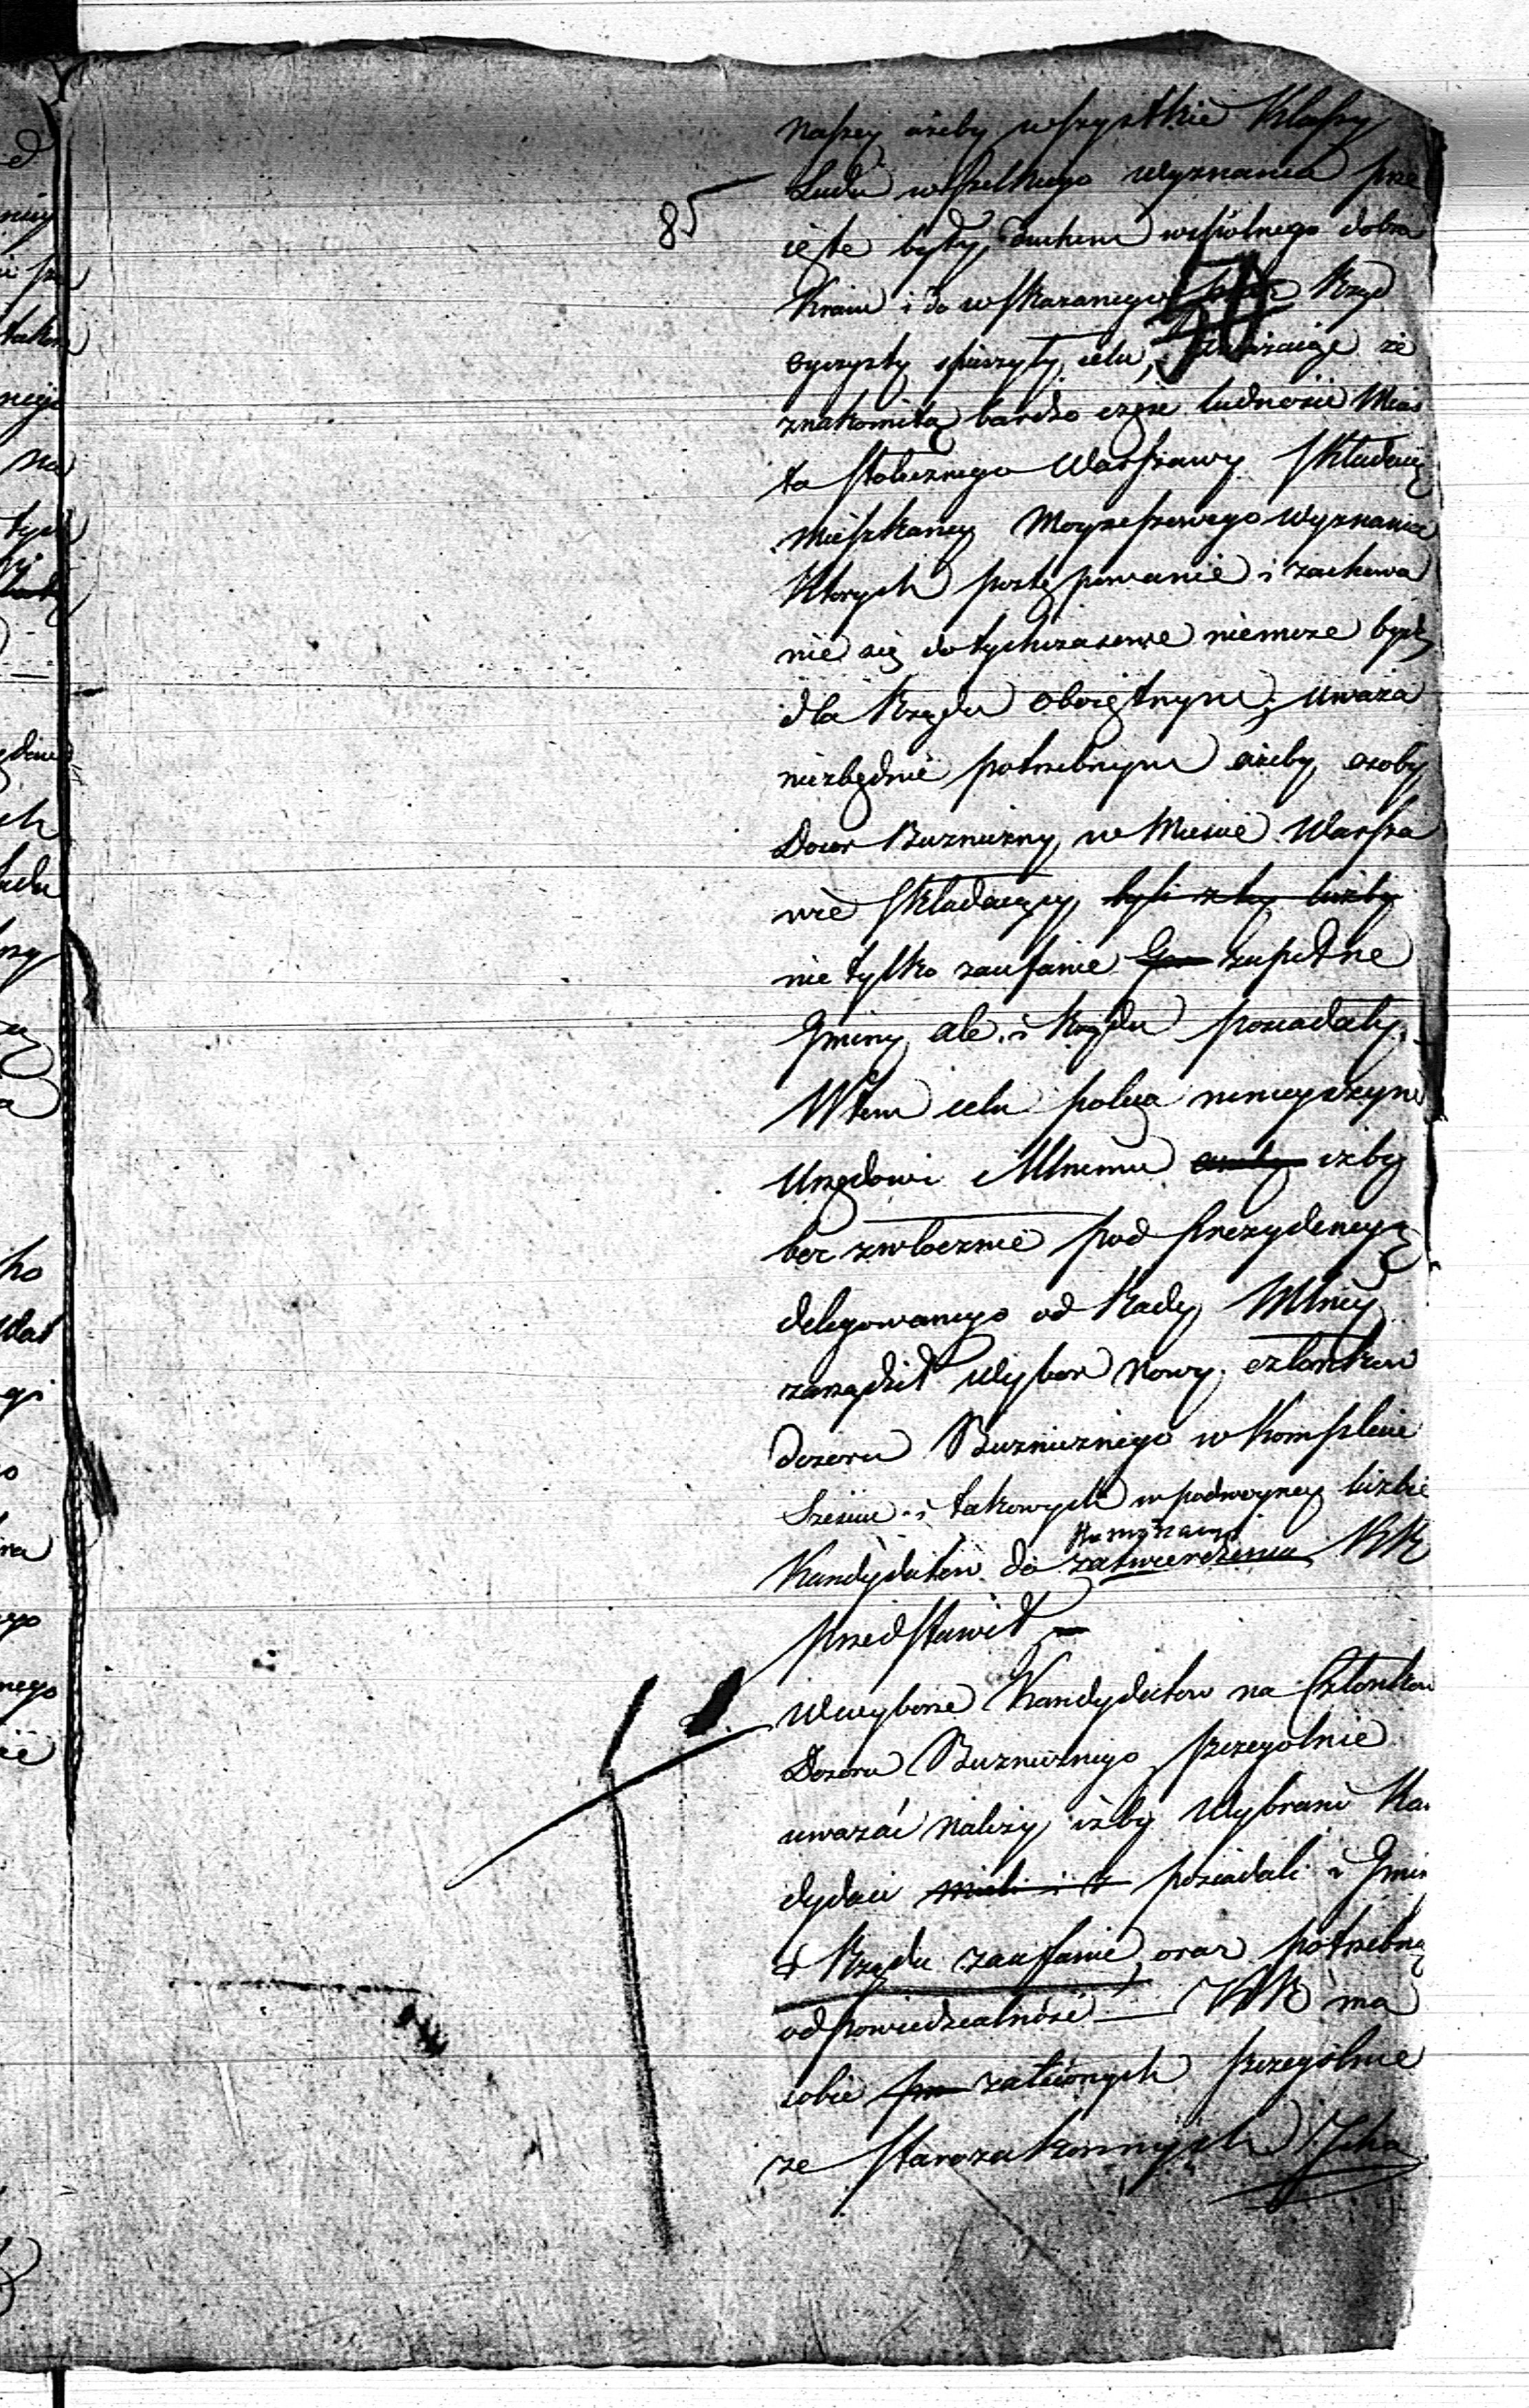 85
naszey ażeby wszystkie Klassy
Ludu wszelkiego wyznania prze
ięte były duchem wspólnego dobra
Kraiu i do wskazanego przez Rząd
50
oyczysty spieszyły celu, uważaiąc że
znakomitą bardzo część ludności Mias
ta stołecznego Warszawy składaią
Mieszkańcy Moyżeszowego wyznania
których postępowanie i zachowa
nie się dotychczasowe niemoże bydź
dla Rządu oboiętnym; uważa
niezbędnie potrzebnym ażeby osoby
Dozor Bużniczny w Mieście Warsza
wie składaiący byli z tey liczby
nie tylko zaufanie Gm zupełne
Gminy ale i Rządu posiadały.
W tem celu poleca ninieyszym
Urzędowi Mlnemu ażeby iżby
bez zwłocznie pod prezydencyą
delegowanego od Rady Mlney
zarządził wybor nowy członków
Dozoru Bużnicznego w komplecie
sześciu i takowych w podwoyney liczbie
Kandydatów do zatwierdzenia KR
przedstawił
W wyborze Kandydatów na Członków
Dozoru Bużnicznego szczególnie
uważać należy iżby wybrani Kan
dydaci mieli i z posiadali i Gmin
i Rządu zaufanie, oraz potrzebną
odpowiedzialność — KR ma
sobie zaleconych szczególnie
ze starozakonnych